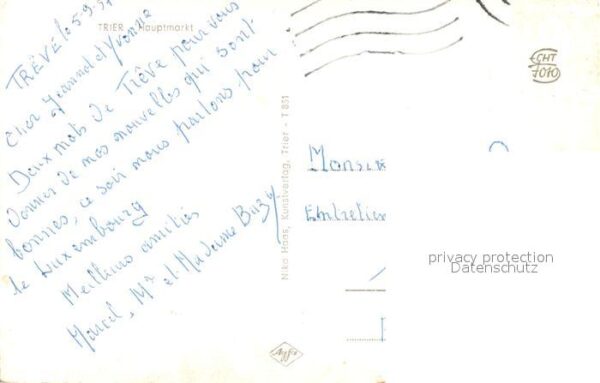 TRIER Hauptmarkt
TRÊVE le 5.9.57
Cher Jeannot et Yvonne
Deux mots de Trêve pour vous
donner de nos nouvelles qui sont
bonnes, ce soir nous partons pour
le Luxembourg
Meilleures amitiés
Marcel, Mr et Madame
Niko Haas, Kunstverlag, Trier - T 851
ECHT
FOTO
Agfa
Monsie
Entretien
privacy protection
Datenschutz